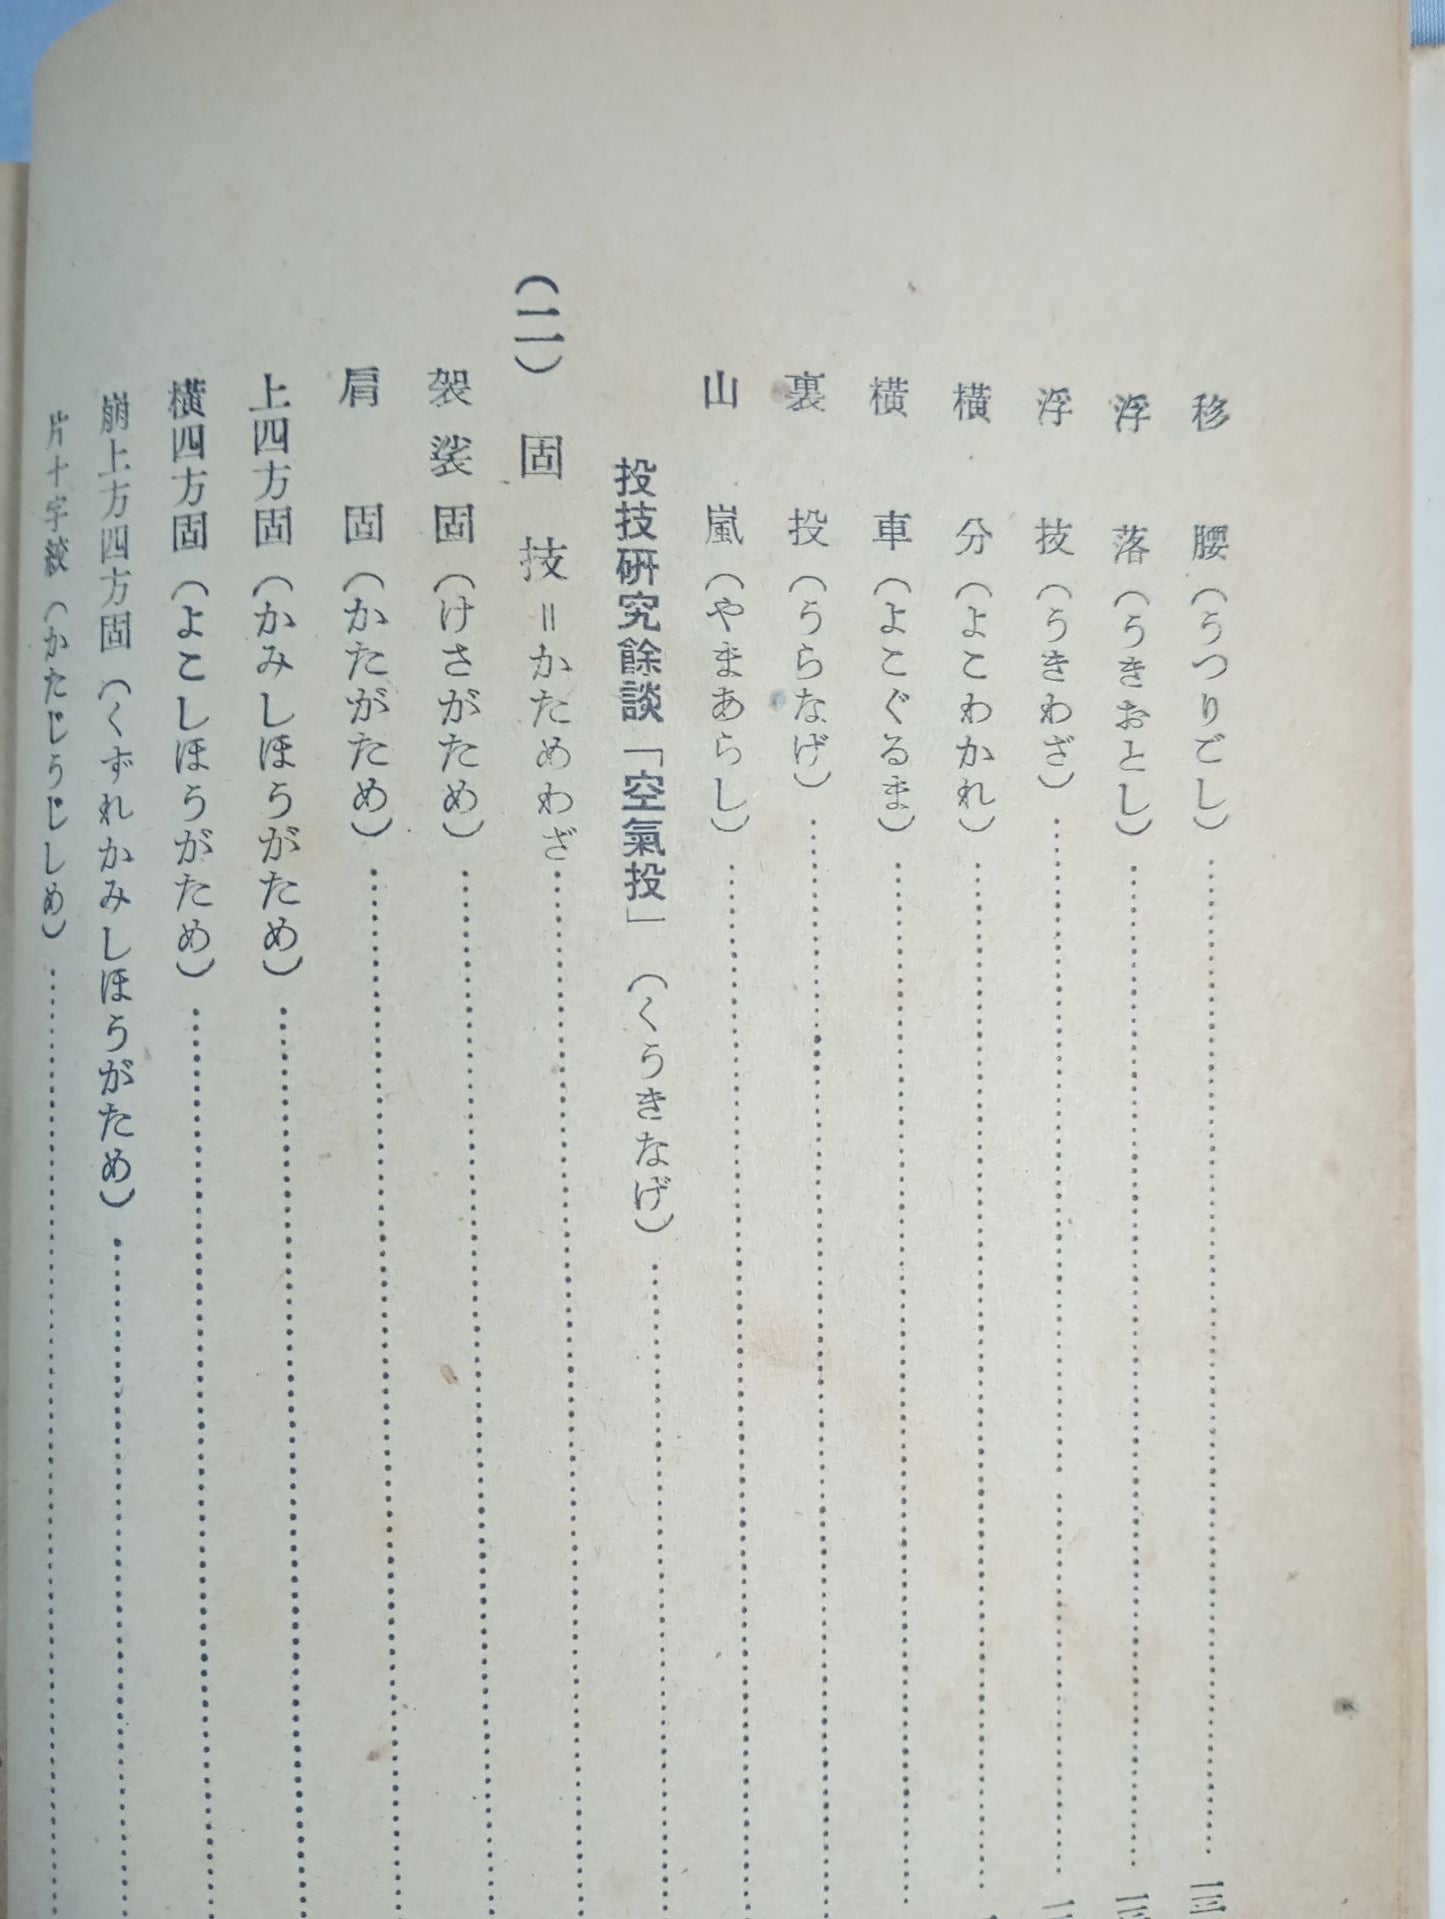 移腰（うつりごし）
浮落（うきおとし）
浮技（うきわざ）
横分（よこわかれ）
横車（よこぐるま）
裏投（うらなげ）
山嵐（やまあらし）
投技硏究餘談「空氣投」（くうきなげ）
（二）固技＝かためわざ
袈裟固（けさがため）
肩固（かたがため）
上四方固（かみしほうがため）
横四方固（よこしほうがため）
崩上方四方固（くずれかみしほうがため）
片十字絞（かたじうじしめ）